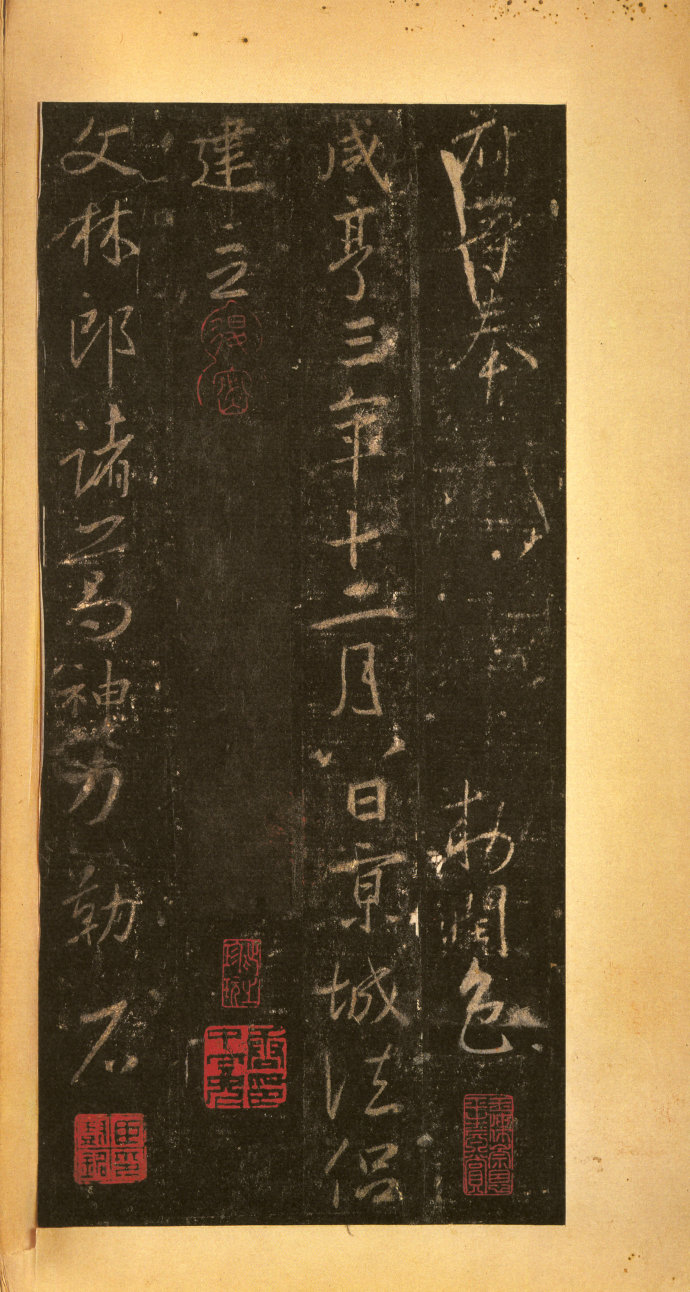 府等奉　勅潤色
咸亨三年十二月八日京城法侶
建立
文林郎諸葛神力勒石